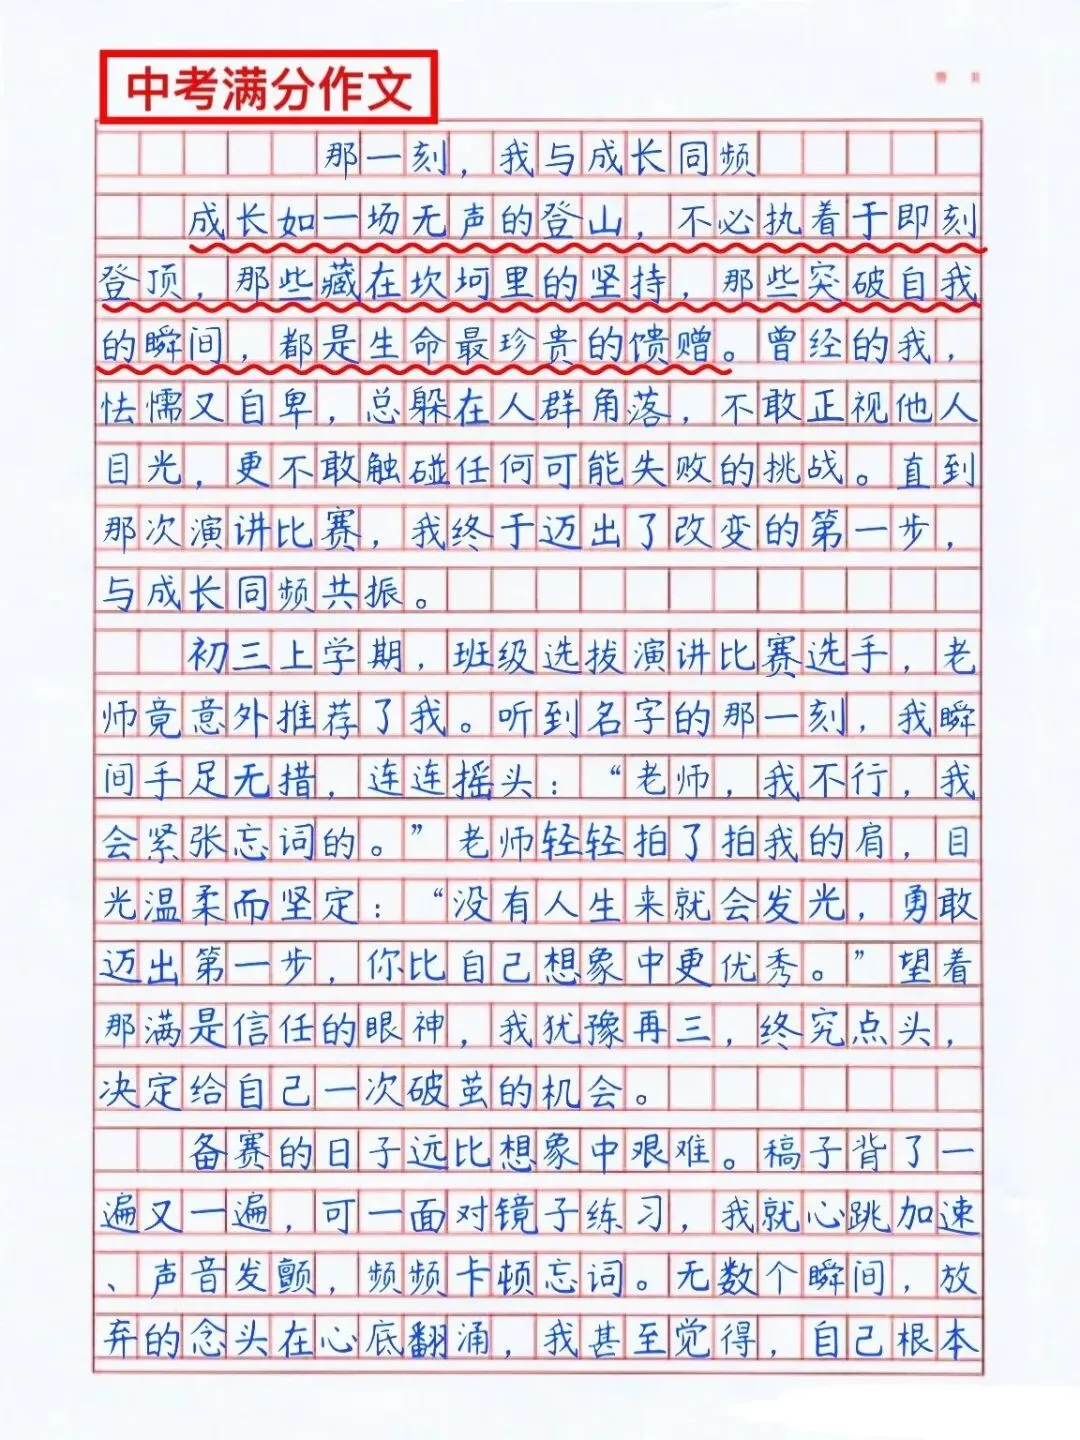 中考满分作文
那一刻，我与成长同频
成长如一场无声的登山，不必执着于即刻
登顶，那些藏在坎坷里的坚持，那些突破自我
的瞬间，都是生命最珍贵的馈赠。曾经的我，
怯懦又自卑，总躲在人群角落，不敢正视他人
目光，更不敢触碰任何可能失败的挑战。直到
那次演讲比赛，我终于迈出了改变的第一步，
与成长同频共振。
初三上学期，班级选拔演讲比赛选手，老
师竟意外推荐了我。听到名字的那一刻，我瞬
间手足无措，连连摇头：“老师，我不行，我
会紧张忘词的。”老师轻轻拍了拍我的肩，目
光温柔而坚定：“没有人生来就会发光，勇敢
迈出第一步，你比自己想象中更优秀。”望着
那满是信任的眼神，我犹豫再三，终究点头，
决定给自己一次破茧的机会。
备赛的日子远比想象中艰难。稿子背了一
遍又一遍，可一面对镜子练习，我就心跳加速
、声音发颤，频频卡顿忘词。无数个瞬间，放
弃的念头在心底翻涌，我甚至觉得，自己根本